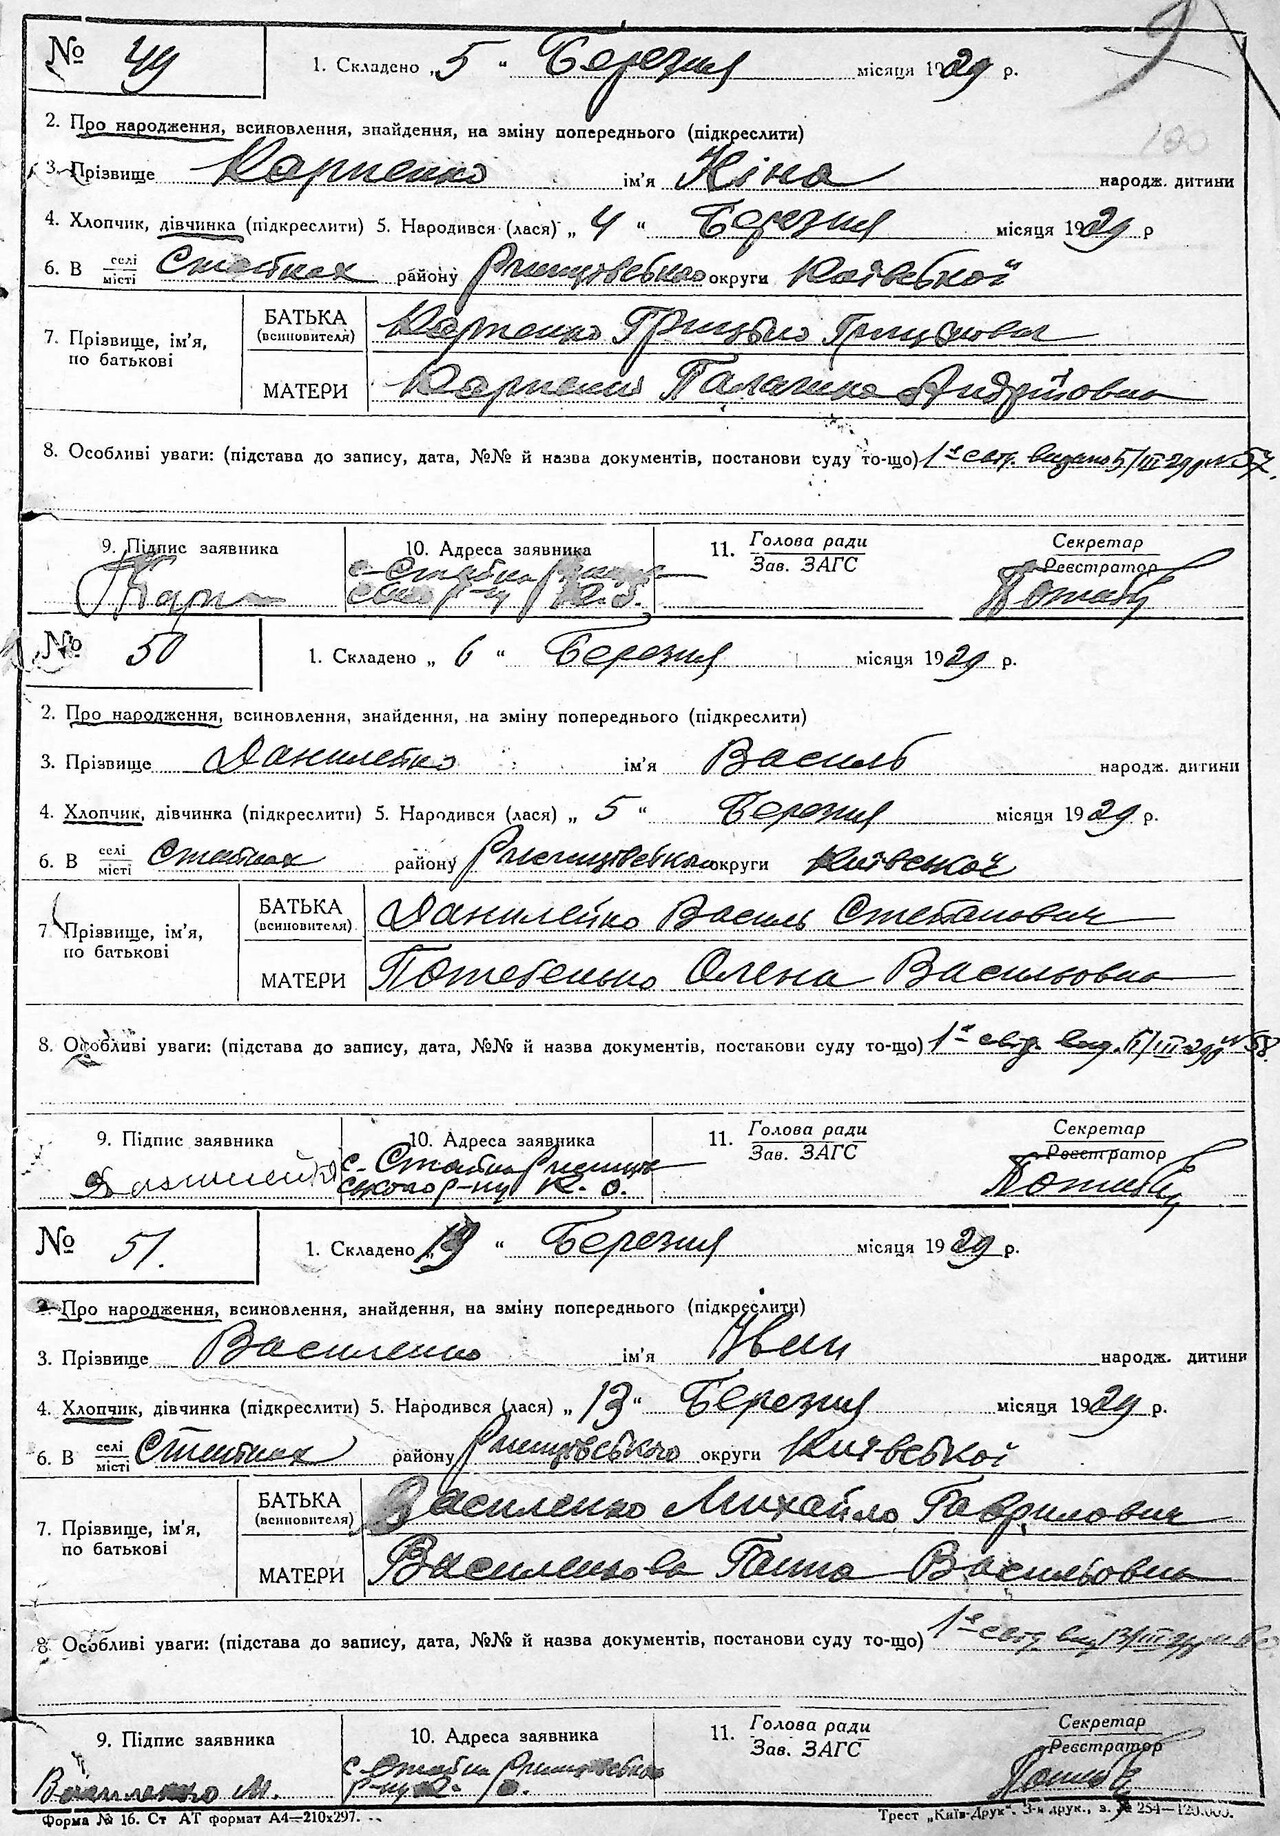 9
190
№ 49 1. Складено „5“ Березня місяця 1929 р.
2. Про народження, всиновлення, знайдення, на зміну попереднього (підкреслити)
3. Прізвище Карпенко ім'я Ніна народж. дитини
4. Хлопчик, дівчинка (підкреслити) 5. Народився (лася) „4“ Березня місяця 1929 р
6. В селі місті Стайках району Ржищівського округи Київської
7. Прізвище, ім'я, по батькові БАТЬКА (всиновителя) Карпенко Грицько Грицькович
МАТЕРИ Карпенко Палажка Андріївна
8. Особливі уваги: (підстава до запису, дата, №№ й назва документів, постанови суду то-що) 1-е свід. видано 5/III-29 р. № 57.
9. Підпис заявника 10. Адреса заявника 11. Голова ради Секретар
Зав. ЗАГС Реєстратор
Карп с-Стайки
р-ну К. О.
№ 50 1. Складено „6“ Березня місяця 1929 р.
2. Про народження, всиновлення, знайдення, на зміну попереднього (підкреслити)
3. Прізвище Данилейко ім'я Василь народж. дитини
4. Хлопчик, дівчинка (підкреслити) 5. Народився (лася) „5“ Березня місяця 1929 р.
6. В селі місті Стайках району Ржищівського округи Київської
7. Прізвище, ім'я, по батькові БАТЬКА (всиновителя) Данилейко Василь Степанович
МАТЕРИ Потебенько Олена Васильовна
8. Особливі уваги: (підстава до запису, дата, №№ й назва документів, постанови суду то-що) 1-е свід. вид. /III-29 р № 58.
9. Підпис заявника 10. Адреса заявника 11. Голова ради Секретар
Зав. ЗАГС Реєстратор
Данилейко с-Стайки Ржищів-
ського р-ну К. О.
№ 51. 1. Складено „13“ Березня місяця 1929 р.
2. Про народження, всиновлення, знайдення, на зміну попереднього (підкреслити)
3. Прізвище Василенко ім'я Іван народж. дитини
4. Хлопчик, дівчинка (підкреслити) 5. Народився (лася) „13“ Березня місяця 1929 р.
6. В селі місті Стайках району Ржищівського округи Київської
7. Прізвище, ім'я, по батькові БАТЬКА (всиновителя) Василенко Михайло Гаврилович
МАТЕРИ Василенкова Ганна Васильовна
8. Особливі уваги: (підстава до запису, дата, №№ й назва документів, постанови суду то-що) 1-е свід. вид. 13/III-29 р.
9. Підпис заявника 10. Адреса заявника 11. Голова ради Секретар
Зав. ЗАГС Реєстратор
Василенко М. с-Стайки Ржищівського
р-ну К. О.
Форма № 16. Ст АТ формат А4—210х297. Трест „Київ-Друк“. 3-я друк., з. № 254—120.000.